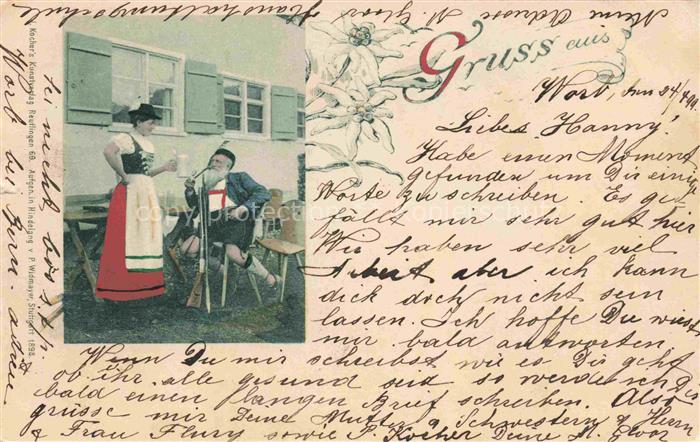 Meine Adresse M. Gloor
Haushaltungsschule
Gruss aus
Worb, den 24/
Liebes Hanny!
Habe einen Moment
gefunden um Dir einige
Worte zu schreiben. Es ge-
fällt mir sehr gut hier
Wir haben sehr viel
Arbeit aber ich kann
dich doch nicht sein
lassen. Ich hoffe Du wirst
mir bald antworten.
Wenn Du mir schreibst wie es Dir geht
ob ihr alle gesund seit so werde ich Dir
bald einen langen Brief schreiben. Also
grüsse mir Deine Mutter & Schwestern & Herrn
& Frau Flury sowie P. Kocher Deine M. Gloor
sei nicht bös ich
Worb bei Bern.
Kocher's Kunstverlag Reutlingen 69. Aufgen. in Hindelang v. P. Widmayer, Stuttgart 1898.